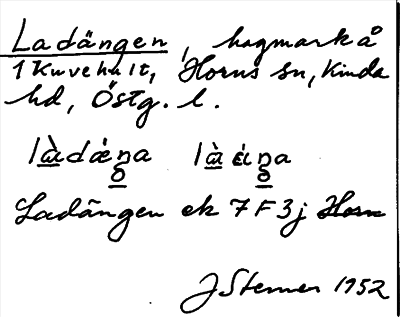 Ladängen, hagmark å
1 Kuvehult, Horns sn, Kinda
hd, Östg. l.
Ladängen ek 7 F 3j Horn
J Sterner 1952